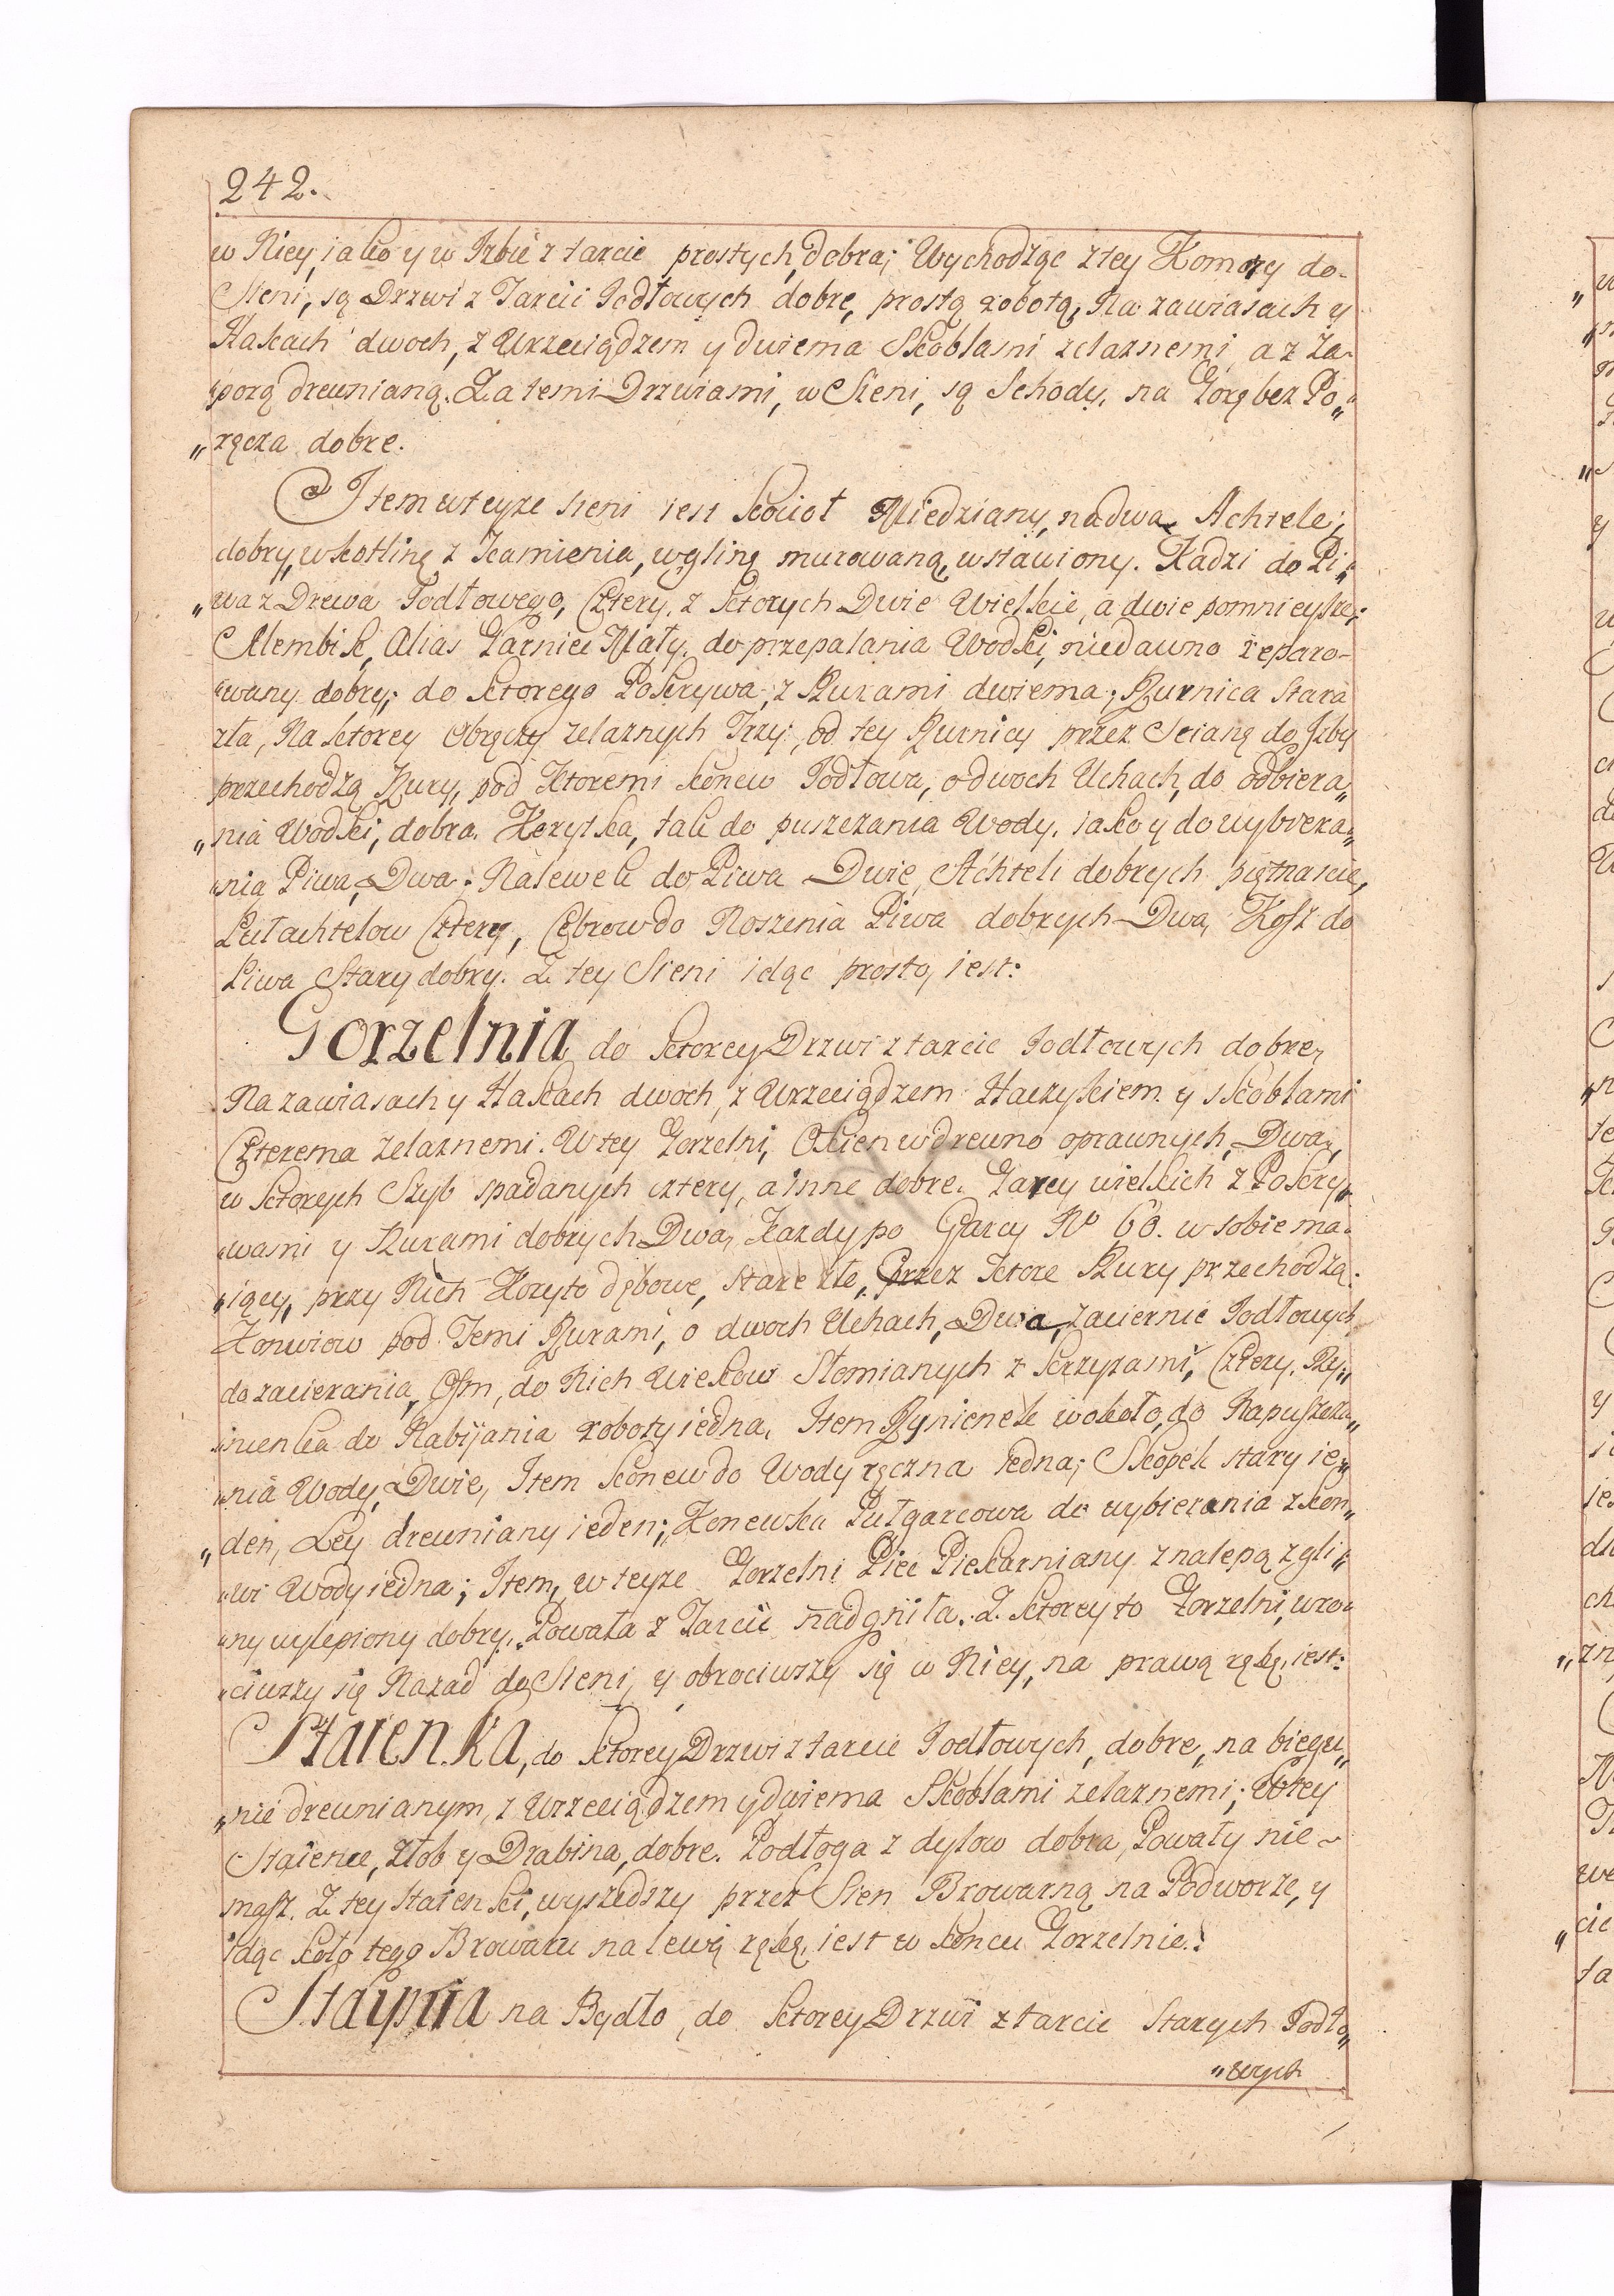 242.
w Niey, iako y w Izbie z tarcic prostych, dobra; Wychodząc z tey Komory do-
Sieni, są Drzwi z Tarcic Jodłowych dobre, prostą robotą, Na zawiasach y
Hakach dwoch, z Wrzeciądzem y dwiema Skoblami zelaznemi a z Za-
„porą drewnianą. Za temi Drzwiami, w Sieni, są Schody, na Gorę bez Po„
„ręcza dobre.
Item w teyze sieni iest kocioł Miedziany, na dwa Achtele;
dobry, w kotlinę z Kamienia, w glinę murowaną, wstawiony. Kadzi do Pi„
„wa z Drewa Jodłowego, Cztery, z ktorych Dwie Wielkie, a dwie pomnieysze;
Alembik, Alias Garniec Mały, do przepalania Wodki, niedawno reparo-
„wany dobry; do ktorego Pokrywa, z Rurami dwiema; Rurnica Stara
zła, Na ktorey Obręczy zelaznych Trzy, od tey Rurnicy przez Scianę do Izby
przechodzą Rury, pod Ktoremi konew Jodłowa, o dwoch Uchach, do odbiera„
„nia Wodki, dobra. Korytka, tak do puszczania Wody, iako y do wybiera„
„nia Piwa, Dwa. Nalewek do Piwa Dwie, Achteli dobrych piętnascie,
Pułachtelow Cztery, Cebrow do Noszenia Piwa dobrych Dwa, Kosz do
Piwa Stary dobry. Z tey Sieni idąc prosto, iest:
Gorzelnia do ktorey Drzwi z tarcic Jodłowych dobre,
Na zawiasach y Hakach dwoch, z Wrzeciądzem Haczykiem y skoblami
Czterema zelaznemi. W tey Gorzelni, Okien w drewno oprawnych, Dwa,
w ktorych Szyb spadanych cztery, a inne dobre. Garcy wielkich z Pokry„
„wami y Rurami dobrych Dwa, Kazdy po Garcy No 60. w sobie ma-
„iący, przy Nich Koryto dębowe, stare złe, przez Ktore Rury przechodzą.
Konwiow pod Temi Rurami, o dwoch Uchach, Dwa, Zaciernic Jodłowych
do zacierania, Osm, do Nich Wiekow Słomianych z krzyzami, Cztery, Ry„
„nienka do Nabijania roboty iedna, Item Rynienek wokoło, do Napuszcza„
„nia Wody, Dwie, Item konew do Wody ręczna iedna; Skopek stary ie„
„den, Ley drewniany ieden; Konewka Pułgarcowa do wybierania z kon„
„wi Wody iedna; Item, w teyze Gorzelni Piec Piekarniany z nalepą z gli„
„ny wylepiony dobry, Powała z Tarcic nadgniła. Z ktorey to Gorzelni, wro„
„ciwszy się Nazad do Sieni, y obrociwszy się w Niey, na prawą rękę, iest:
Staienka, do ktorey Drzwi z tarcic Jodłowych, dobre, na biegu„
„nie drewnianym, z Wrzeciądzem y dwiema Skoblami zelaznemi; W tey
Staience, Złob y Drabina, dobre. Podłoga z dylow dobra, Powały nie-
masz. Z tey staienki, wyszedszy przez Sien Browarną na Podworze, y
idąc koło tego Browaru na lewą rękę, iest w koncu Gorzelnie:
Staynia na Bydło, do ktorey Drzwi z tarcic Starych Jodło„
„wych